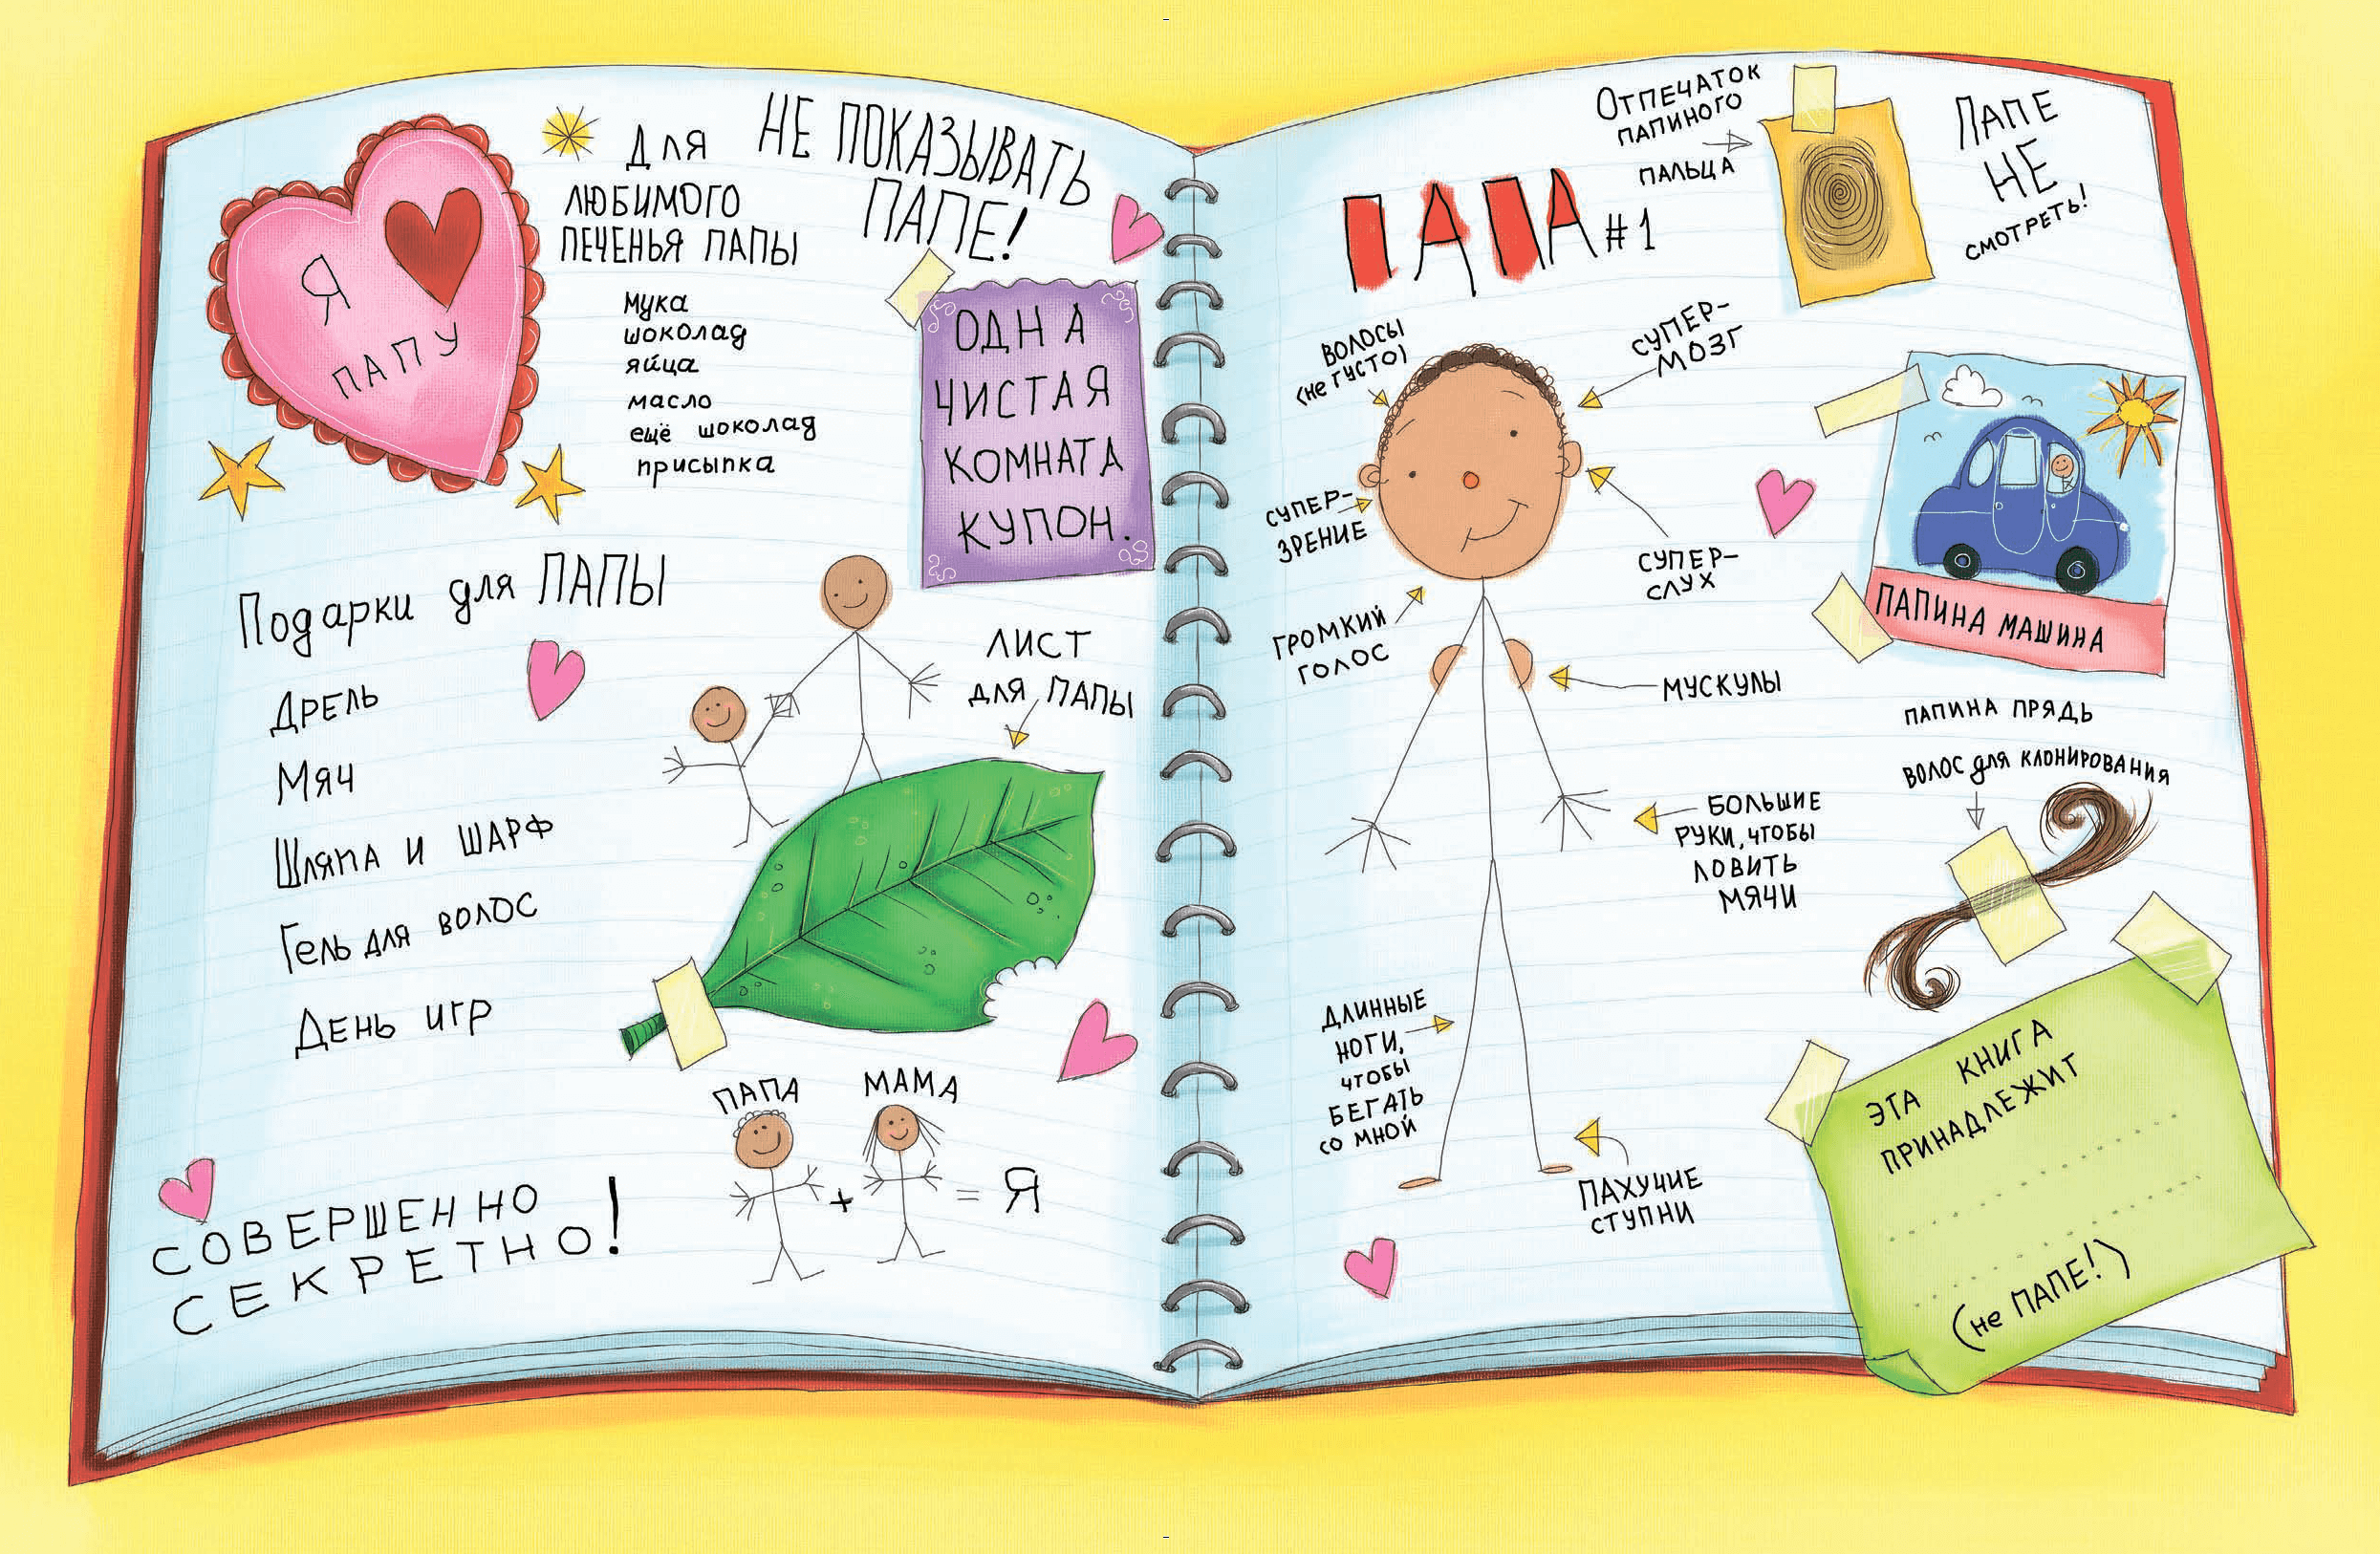 Я
ПАПУ
Для
ЛЮБИМОГО
ПЕЧЕНЬЯ ПАПЫ
мука
шоколад
яйца
масло
ещё шоколад
присыпка
НЕ ПОКАЗЫВАТЬ
ПАПЕ!
ОДНА
ЧИСТАЯ
КОМНАТА
КУПОН.
Подарки для ПАПЫ
ДРЕЛЬ
Мяч
Шляпа и ШАРФ
Гель для волос
День игр
ЛИСТ
ДЛЯ ПАПЫ
ПАПА
МАМА
+ = Я
СОВЕРШЕННО
СЕКРЕТНО!
ОТПЕЧАТОК
ПАПИНОГО
ПАЛЬЦА
ПАПЕ
НЕ
СМОТРЕТЬ!
ПАПА #1
ВОЛОСЫ
(не густо)
СУПЕР-
МОЗГ
СУПЕР-
ЗРЕНИЕ
СУПЕР-
СЛУХ
ГРОМКИЙ
ГОЛОС
МУСКУЛЫ
БОЛЬШИЕ
РУКИ, ЧТОБЫ
ЛОВИТЬ
МЯЧИ
ДЛИННЫЕ
НОГИ,
ЧТОБЫ
БЕГАТЬ
СО МНОЙ
ПАХУЧИЕ
СТУПНИ
ПАПИНА МАШИНА
ПАПИНА ПРЯДЬ
ВОЛОС для КЛОНИРОВАНИЯ
ЭТА КНИГА
ПРИНАДЛЕЖИТ
(не ПАПЕ!)